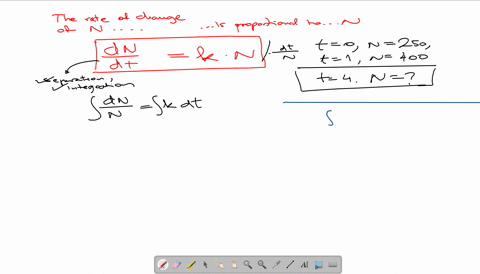 The rate of change
of N .... ...is proportional to...N
dN/dt = k · N /· dt/N
t=0, N=250,
t=1, N=400
t=4. N=?
Separation,
Integration
∫ dN/N = ∫ k dt
∫